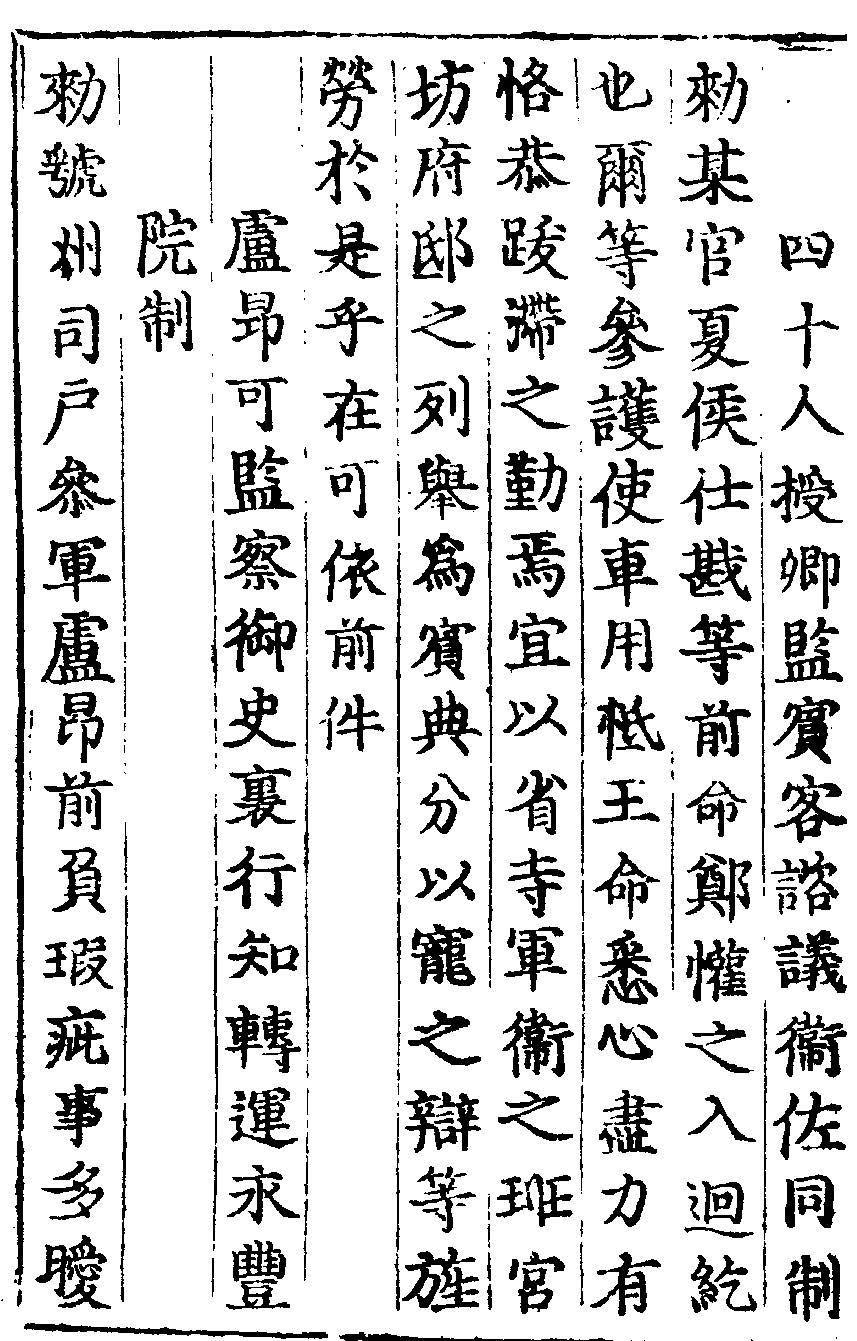 四十人授卿監賓客諮議衞佐同制
勑某官夏侯仕戡等前命鄭懽之入迴紇
也爾等參護使車用㭽王命悉心盡力有
恪恭跋滯之勤焉宜以省寺軍衞之班宮
坊府邸之列舉爲賓典分以寵之辯等旌
勞於是乎在可依前件
盧昻可監察御史裏行知轉運永豐
院制
勑號州司戸叅軍盧昻前負瑕疵事多曖